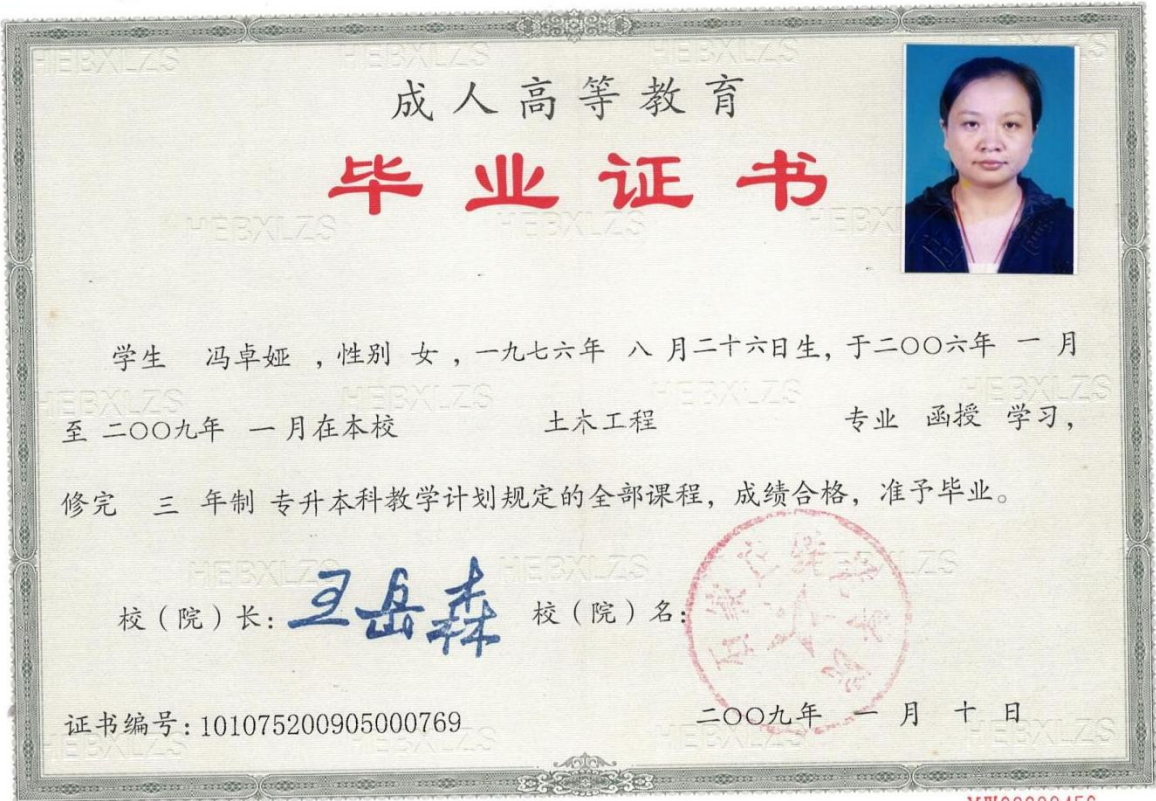 成人高等教育
毕业证书
学生 冯卓娅 ，性别 女 ，一九七六年 八 月二十六日生，于二〇〇六年 一 月
至 二〇〇九年 一 月在本校 土木工程 专业 函授 学习，
修完 三 年制 专升本科教学计划规定的全部课程，成绩合格，准予毕业。
校（院）长：王岳森 校（院）名：
石家庄铁道学院
证书编号：101075200905000769 二〇〇九年 一 月 十 日
HEBXLZS